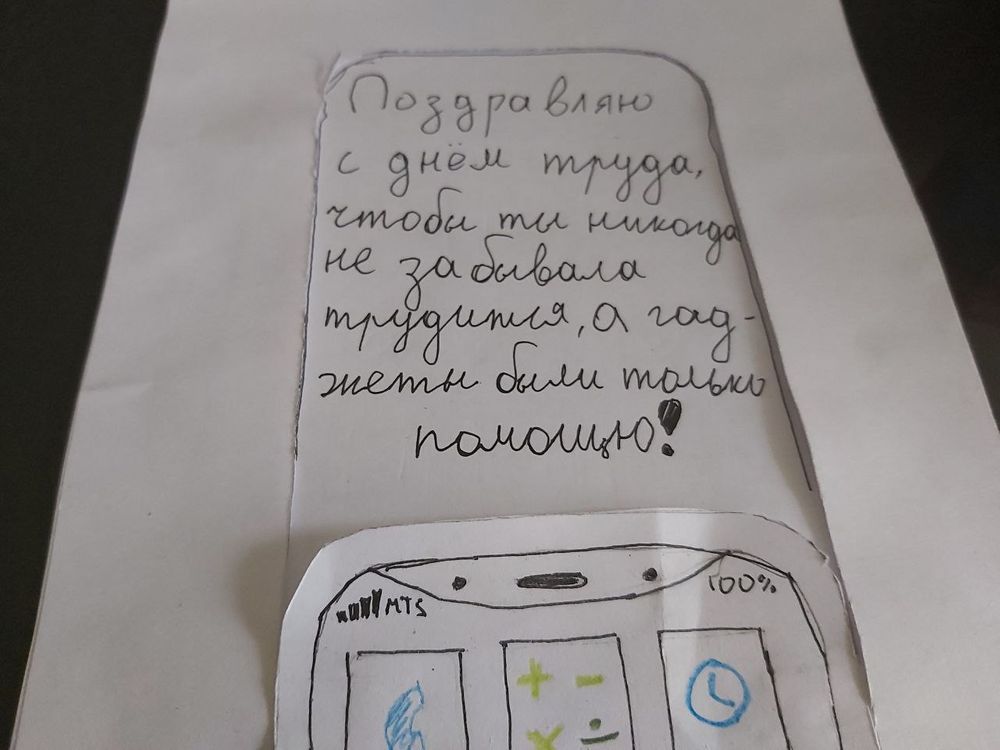 Поздравляю
с днём труда,
чтобы ты никогда
не забывала
трудится, а гад-
жеты были только
помощю!
MTS
100%
+ -
× ÷